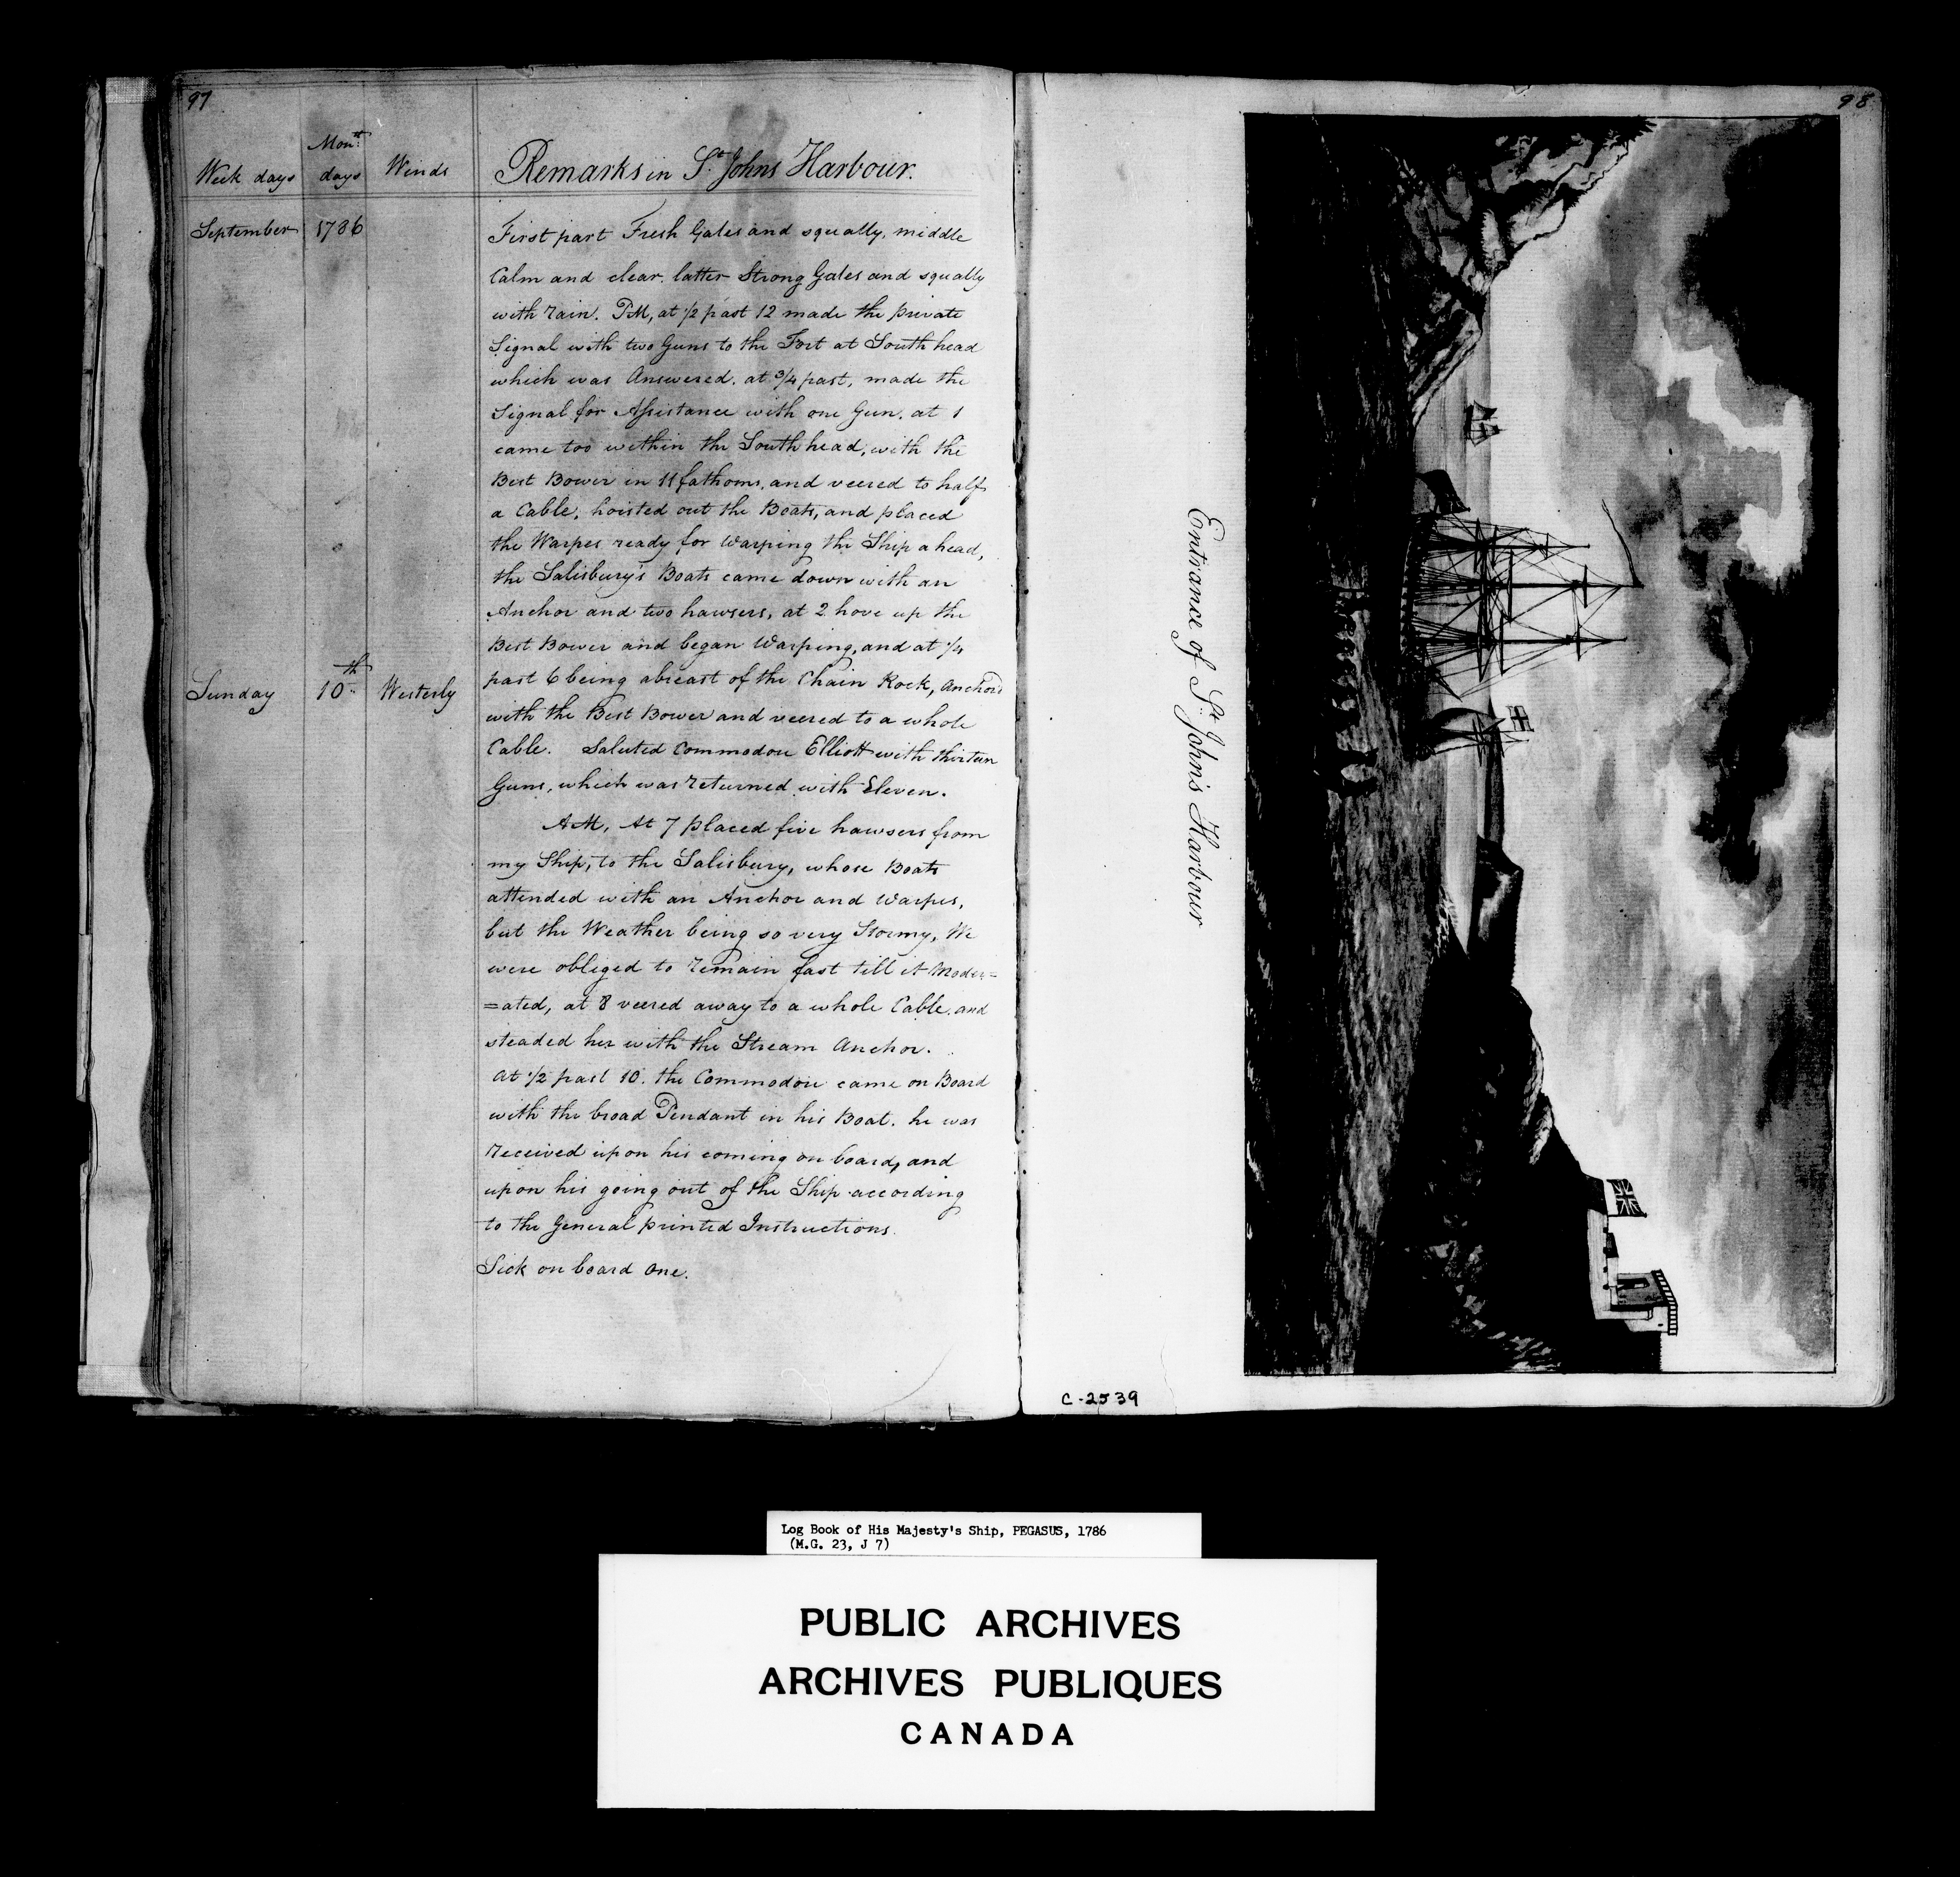 97
Week days
Month days
Winds
Remarks in St. Johns Harbour.
September
1786
First part Fresh Gales and squally, middle
Calm and clear. latter Strong Gales and squally
with rain. PM, at 1/2 past 12 made the private
Signal with two Guns to the Fort at South head
which was Answered. at 3/4 past, made the
Signal for Assistance with one Gun. at 1
came too within the South head, with the
Best Bower in 11 fathoms, and veered to half
a Cable, hoisted out the Boats, and placed
the Warpes ready for Warping the Ship a head,
the Salisbury's Boats came down with an
Anchor and two hawsers, at 2 hove up the
Best Bower and began Warping, and at 1/4
Sunday
10th
Westerly
past 6 being abreast of the Chain Rock, Anchor'd
with the Best Bower and veered to a whole
Cable. Saluted Commodore Elliott with thirteen
Guns, which was returned with Eleven.
AM, At 7 placed five hawsers from
my Ship, to the Salisbury, whose Boats
attended with an Anchor and Warpes,
but the Weather being so very Stormy, We
were obliged to remain fast till it Moder=
=ated, at 8 veered away to a whole Cable. and
steaded her with the Stream Anchor.
At 1/2 past 10. the Commodore came on Board
with the broad Pendant in his Boat. he was
received upon his coming on board, and
upon his going out of the Ship according
to the General printed Instructions.
Sick on board One.
98
Entrance of St. John's Harbour
C-2539
Log Book of His Majesty's Ship, PEGASUS, 1786
(M.G. 23, J 7)
PUBLIC ARCHIVES
ARCHIVES PUBLIQUES
CANADA